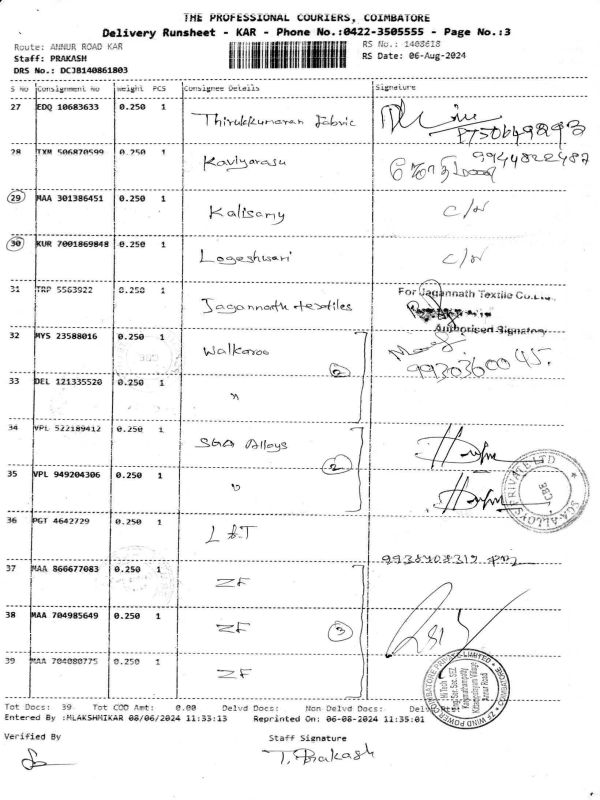 THE PROFESSIONAL COURIERS, COIMBATORE
Delivery Runsheet - KAR - Phone No.:0422-3505555 - Page No.:3
Route: ANNUR ROAD KAR RS No.: 1408618
Staff: PRAKASH RS Date: 06-Aug-2024
DRS No.: DCJB140861803
S No Consignment No Weight PCS Consignee Details Signature
27 EDQ 10683633 0.250 1 Thirukkumaran Fabric
28 TXM 506870599 0.250 1 Kaviyarasu 9944822487
29 MAA 301386451 0.250 1 Kalisamy C/N
30 KUR 7001869848 0.250 1 Logeshwari C/N
31 TRP 5563922 0.250 1 Jagannath textiles For Jagannath Textile Co.Ltd.,
Authorised Signatory
32 MYS 23588016 0.250 1 Walkaroo 2 9930360045.
33 DEL 121335520 0.250 1 "
34 VPL 522189412 0.250 1 SGA Alloys 2
35 VPL 949204306 0.250 1 "
SGA ALLOYS PRIVATE LTD
CBE
36 PGT 4642729 0.250 1 L & T
37 MAA 866677083 0.250 1 ZF
38 MAA 704985649 0.250 1 ZF 3
39 MAA 704080775 0.250 1 ZF
ZF WIND POWER COIMBATORE PRIVATE LIMITED
Hi Tech
Engg. Sec. Soc. SEZ
Annur Road
Tot Docs: 39 Tot COD Amt: 0.00 Delvd Docs: Non Delvd Docs: Delvd Pcs:
Entered By :MLAKSHMIKAR 08/06/2024 11:33:13 Reprinted On: 06-08-2024 11:35:01
Verified By Staff Signature
T. Prakash